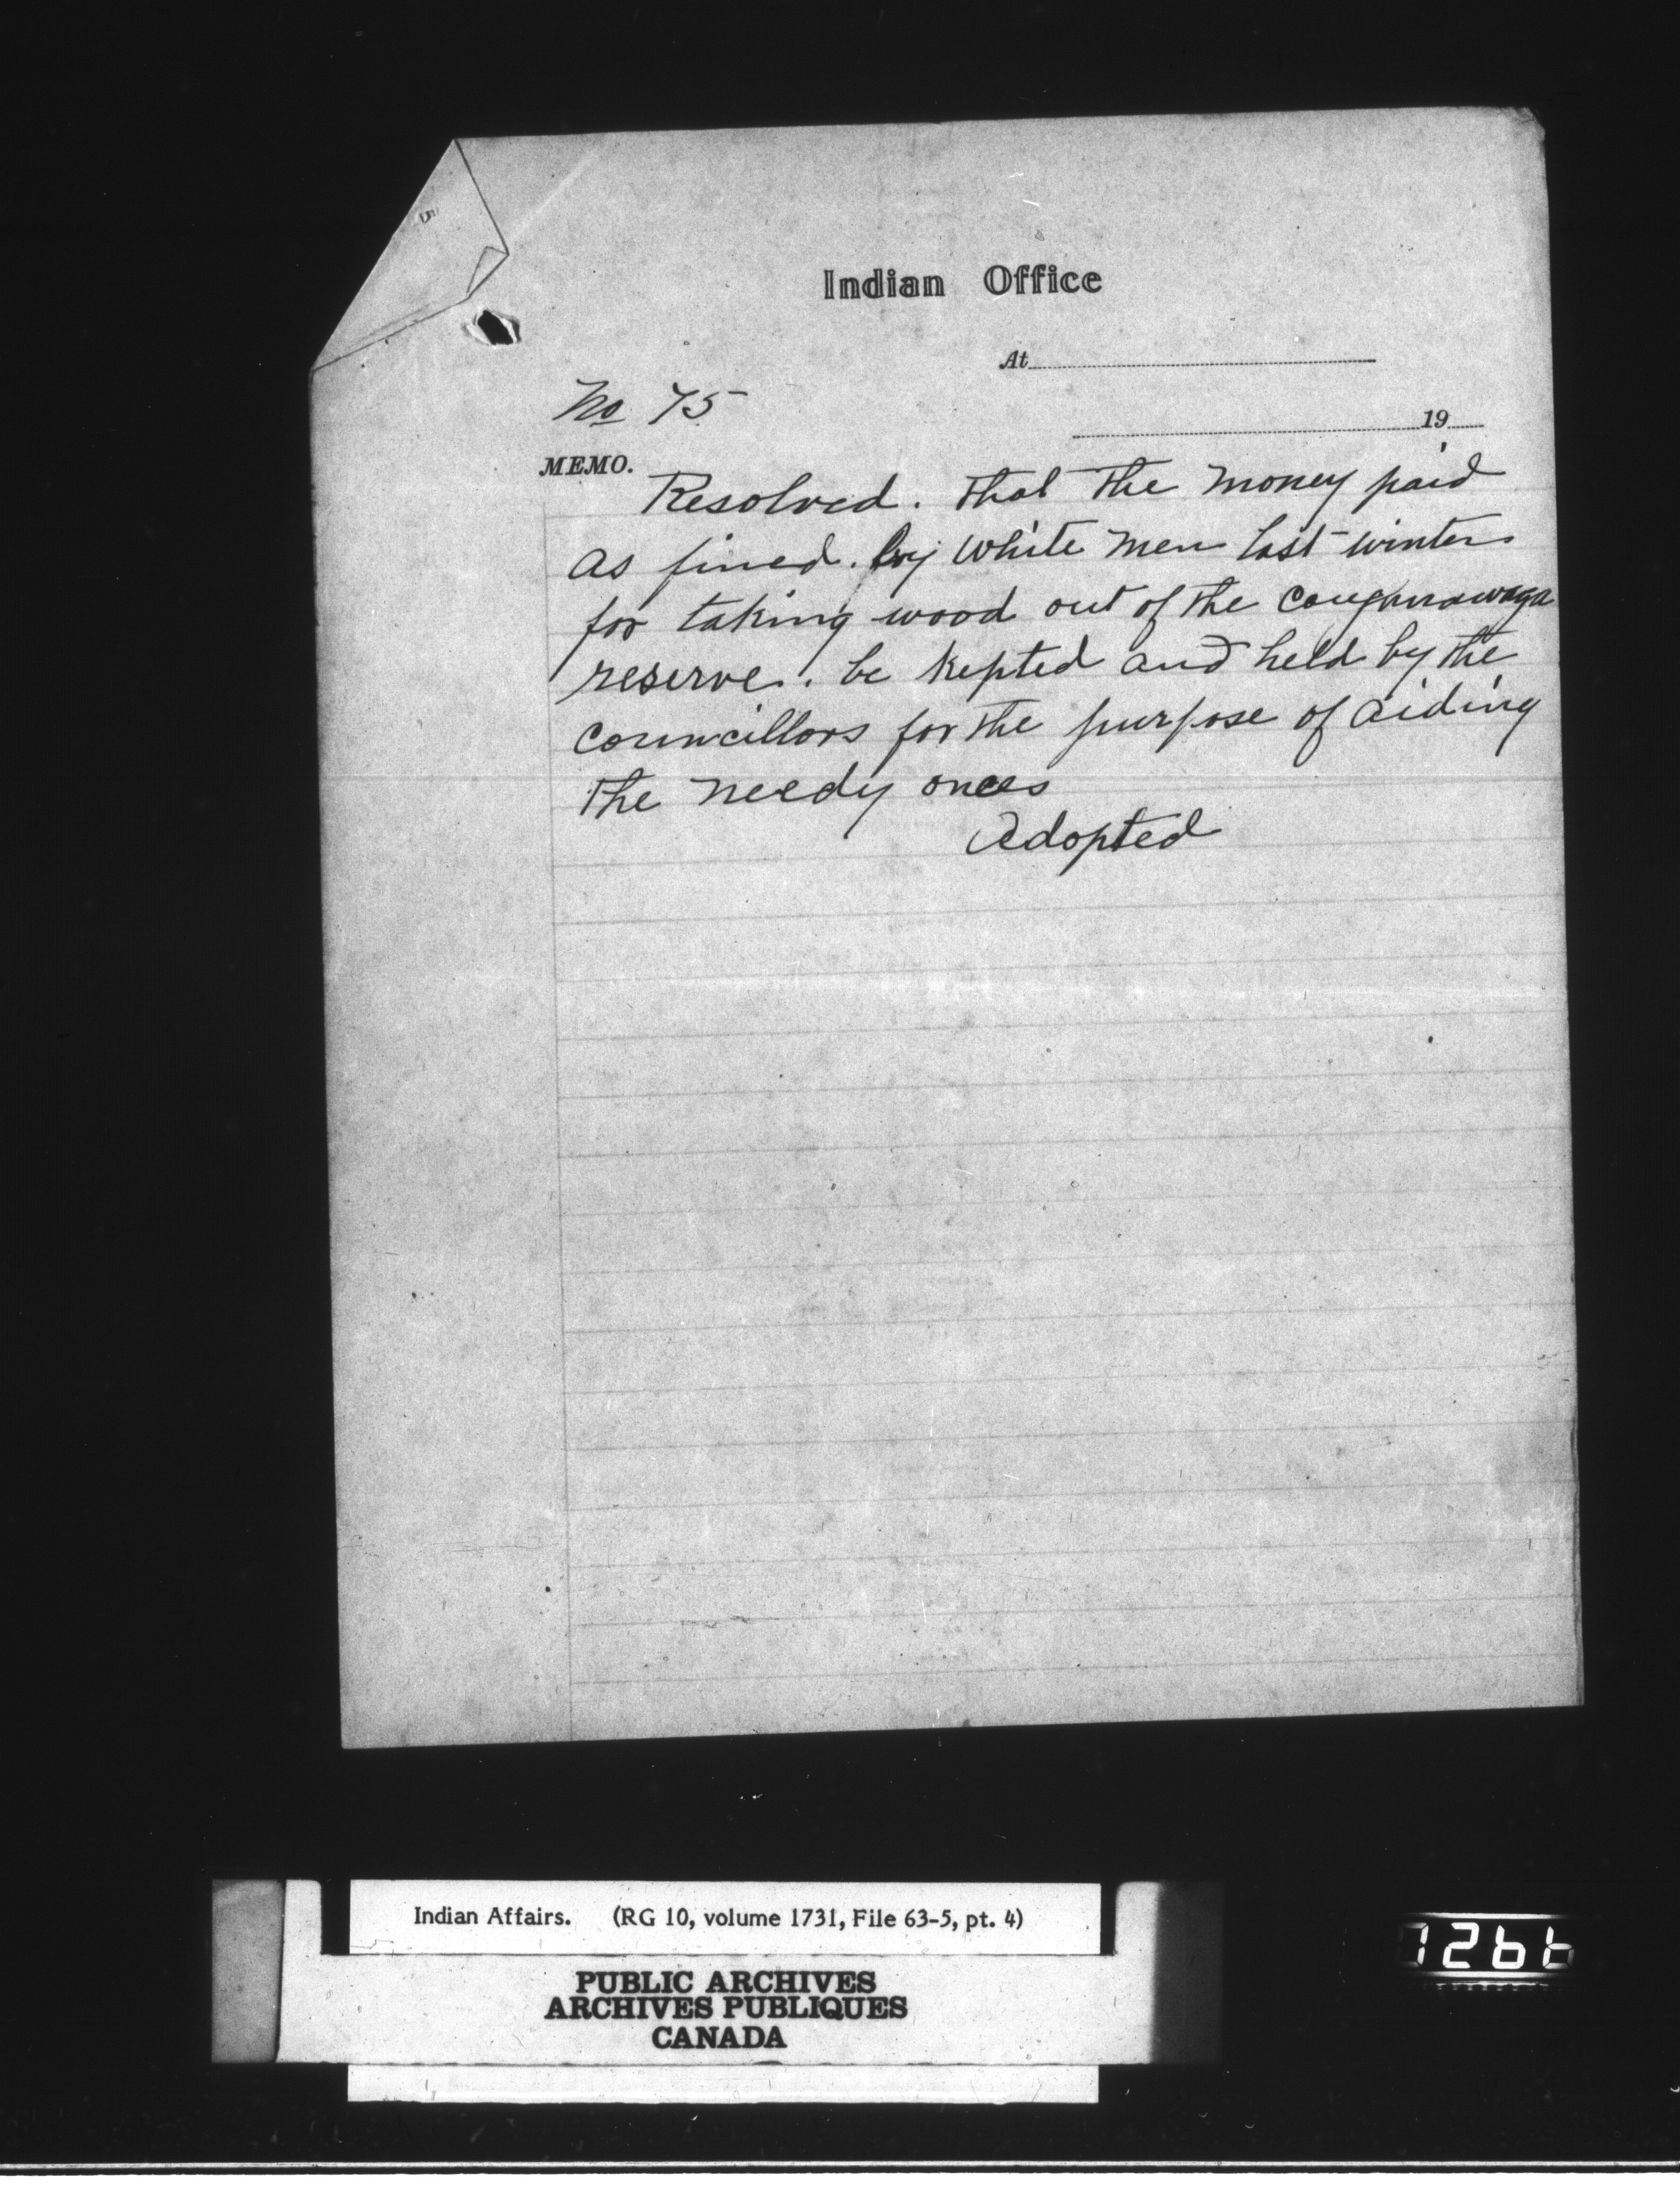 Indian Office
At
No 75
19
MEMO.
Resolved. that the money paid
as fined. by white men last winter
for taking wood out of the Caughnawaga
reserve. be kepted and held by the
councillors for the purpose of aiding
the needy ones
Adopted
Indian Affairs. (RG 10, volume 1731, File 63-5, pt. 4)
PUBLIC ARCHIVES
ARCHIVES PUBLIQUES
CANADA